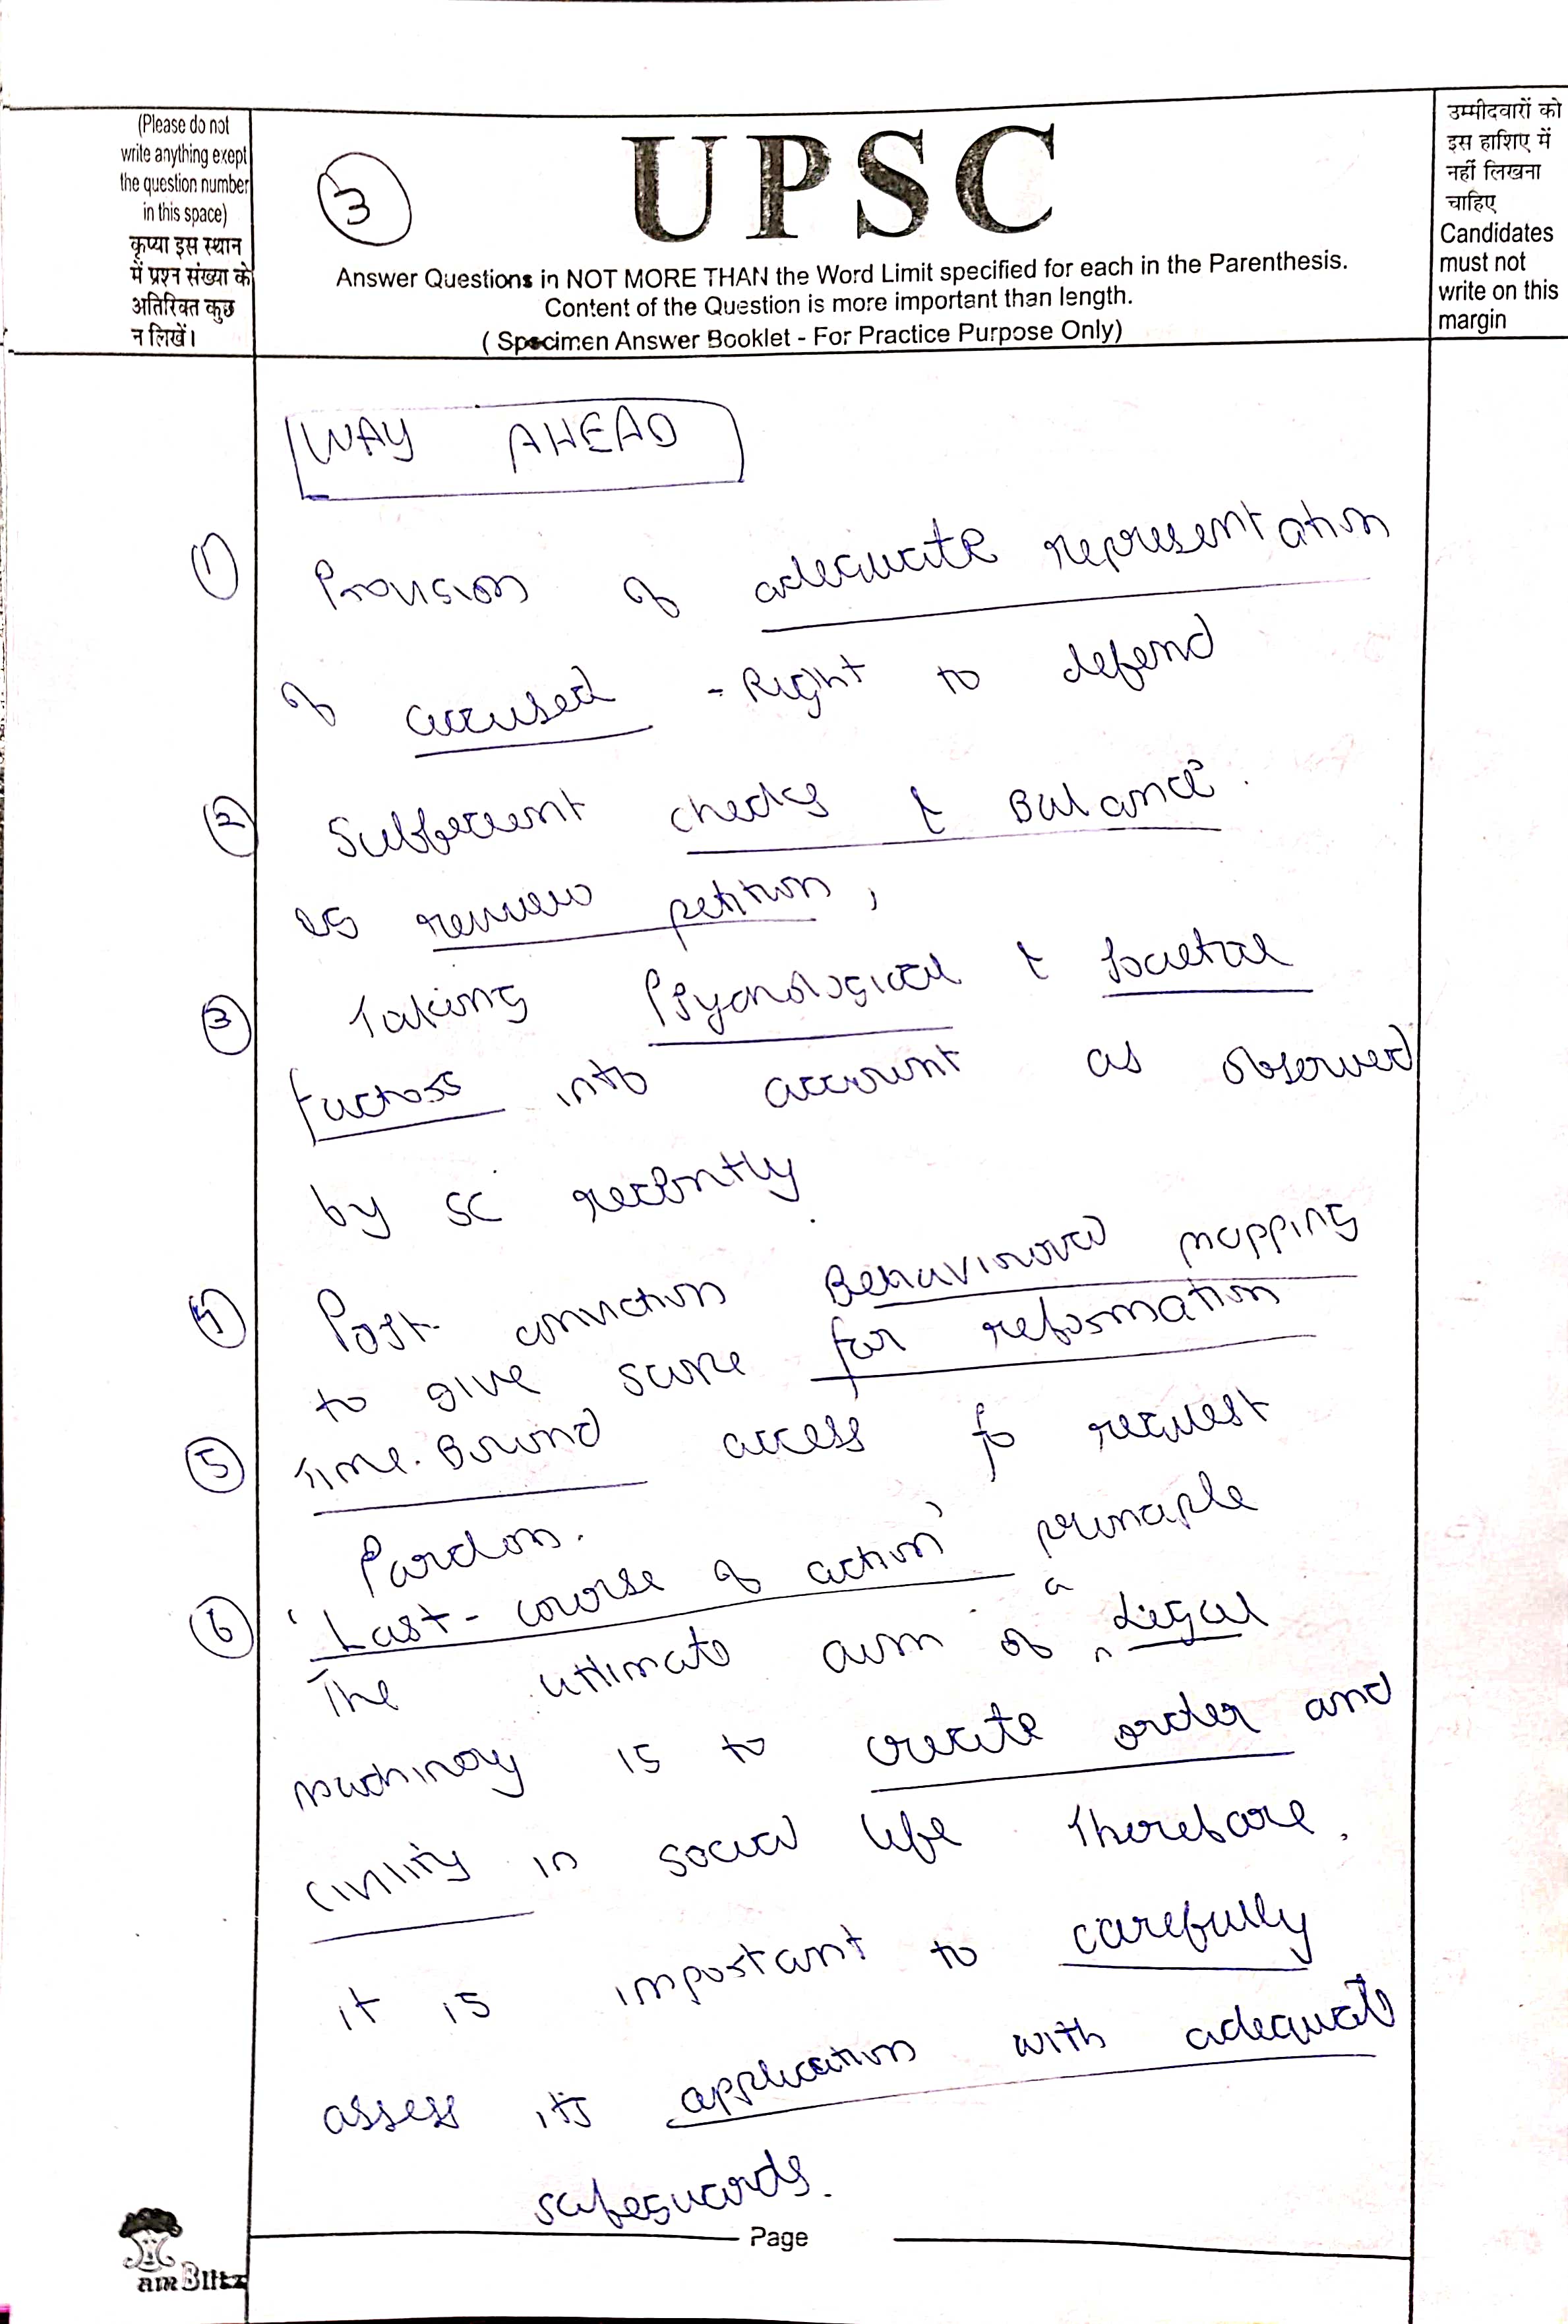 (Please do not
write anything exept
the question number
in this space)
कृप्या इस स्थान
में प्रश्न संख्या के
अतिरिक्त कुछ
न लिखें।
3
UPSC
Answer Questions in NOT MORE THAN the Word Limit specified for each in the Parenthesis.
Content of the Question is more important than length.
( Specimen Answer Booklet - For Practice Purpose Only)
उम्मीदवारों को
इस हाशिए में
नहीं लिखना
चाहिए
Candidates
must not
write on this
margin
WAY AHEAD
1 Provision of adequate representation
of accused - Right to defend
2 Sufficient checks & Balance.
review petition,
3 Taking Psychological & societal
factors into account as observed
by SC recently.
4 Post- conviction Behavioural mapping
to give scope for reformation
5 Time-Bound access to request
Pardon.
6 'Last-course of action' principle
The ultimate aim of a Legal
machinery is to create order and
civility in social life. Therefore,
it is important to carefully
assess its application with adequate
safeguards.
Page
iamBlitz